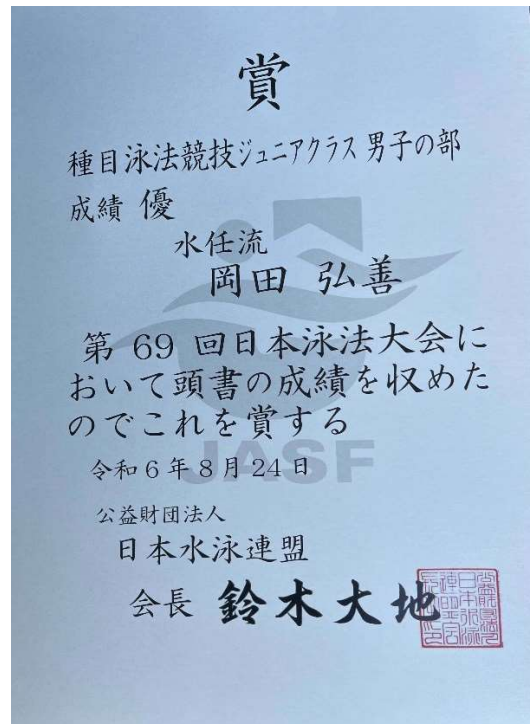 賞
種目泳法競技ジュニアクラス 男子の部
成績 優
水任流
岡田 弘善
第 69 回日本泳法大会に
おいて頭書の成績を収めた
のでこれを賞する
令和6年8月24日
公益財団法人
日本水泳連盟
会長 鈴木大地
JASF